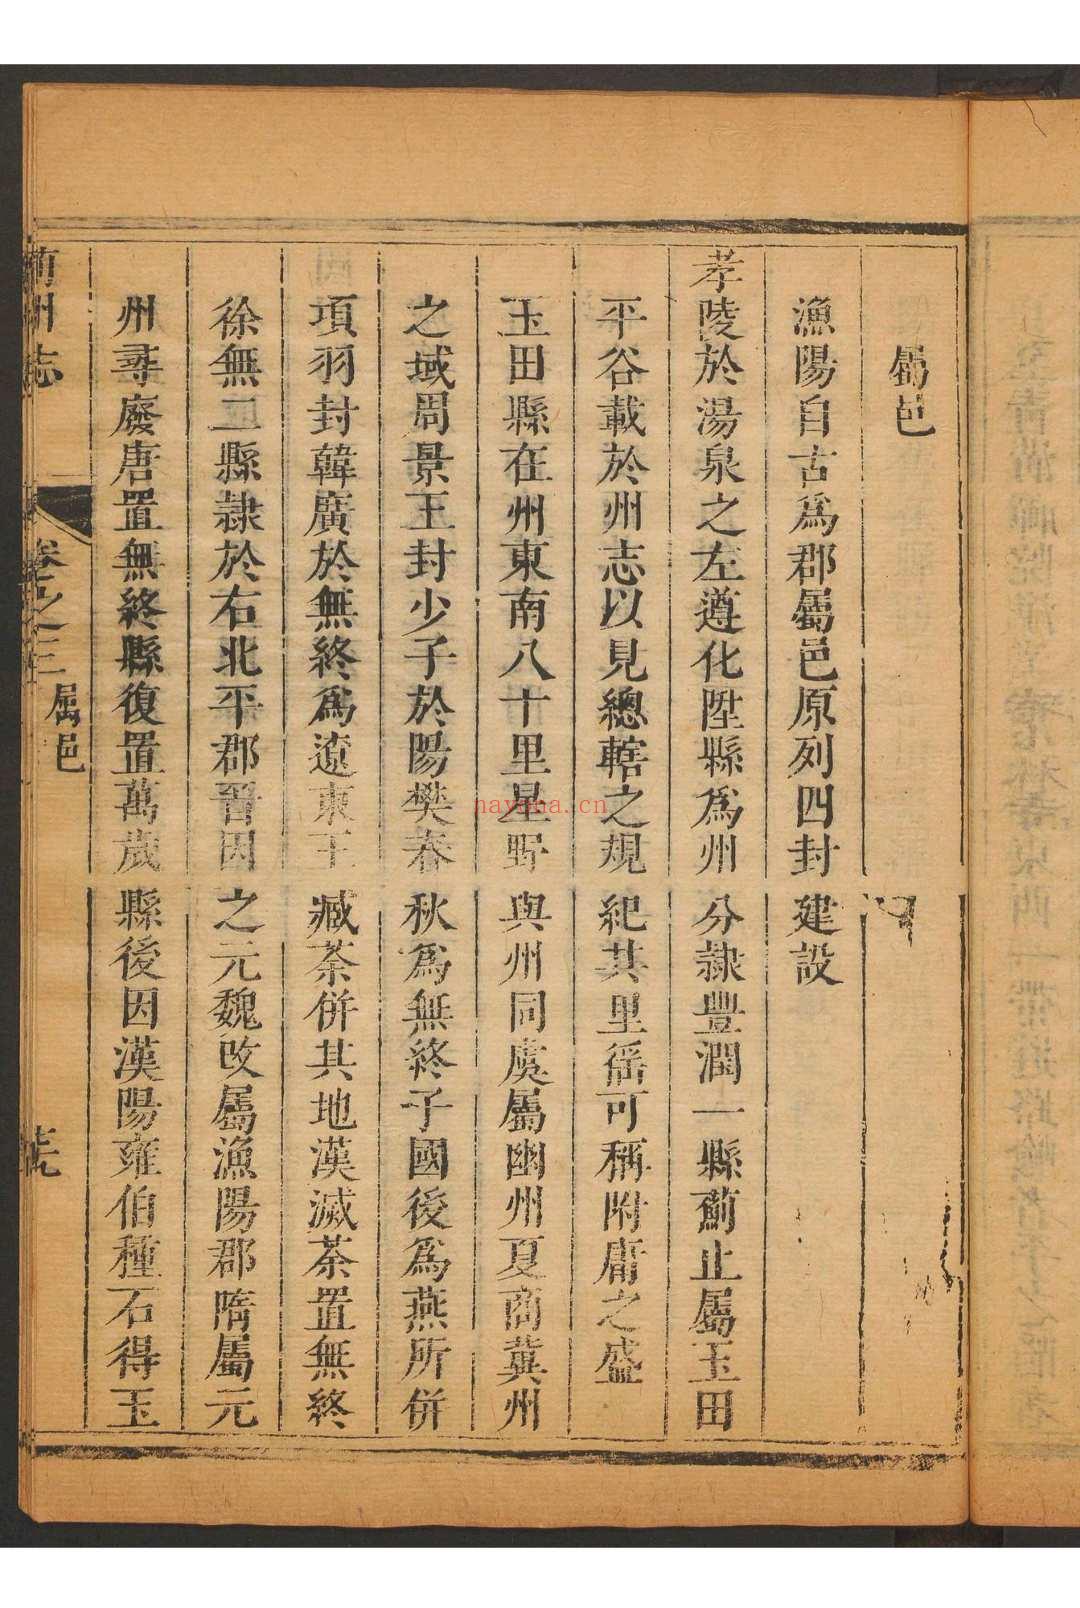 屬邑
漁陽自古爲郡屬邑原列四封建設
孝陵於湯泉之左遵化陞縣爲州分隷豐潤一縣薊止屬玉田
平谷載於州志以見總轄之規紀其里徭可稱附庸之盛
玉田縣在州東南八十里星野與州同虞屬幽州夏商冀州
之域周景王封少子於陽樊春秋爲無終子國後爲燕所併
項羽封韓廣於無終爲遼東王臧荼併其地漢滅荼置無終
徐無二縣隷於右北平郡晉因之元魏改屬漁陽郡隋屬元
州尋廢唐置無終縣復置萬歲縣後因漢陽雍伯種石得玉
薊州志 卷之三 屬邑
nayona.cn